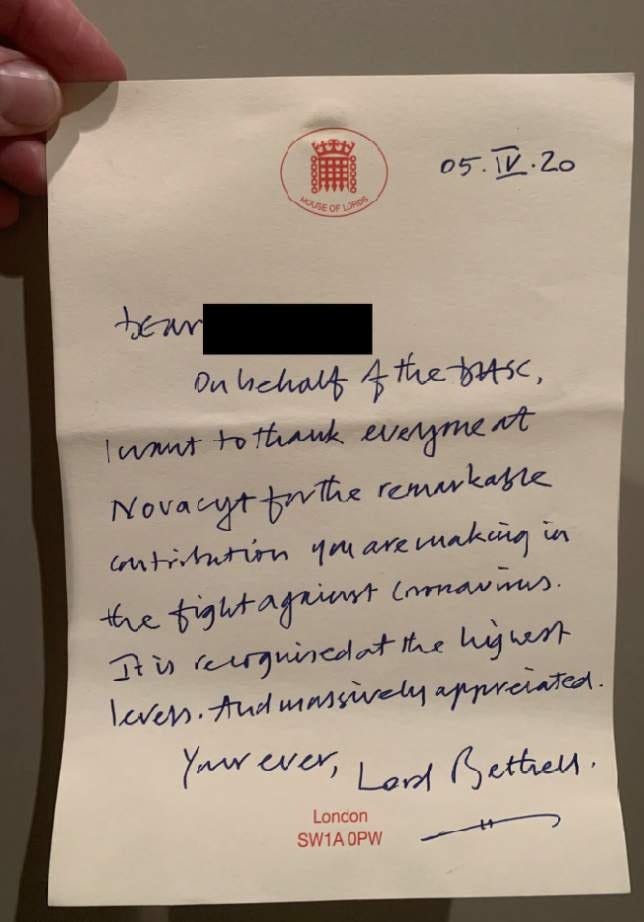 HOUSE OF LORDS
05.IV.20
Dear
On behalf of the DHSC,
I want to thank everyone at
Novacyt for the remarkable
contribution you are making in
the fight against Coronavirus.
It is recognised at the highest
levels. And massively appreciated.
Your ever, Lord Bethell.
London
SW1A 0PW